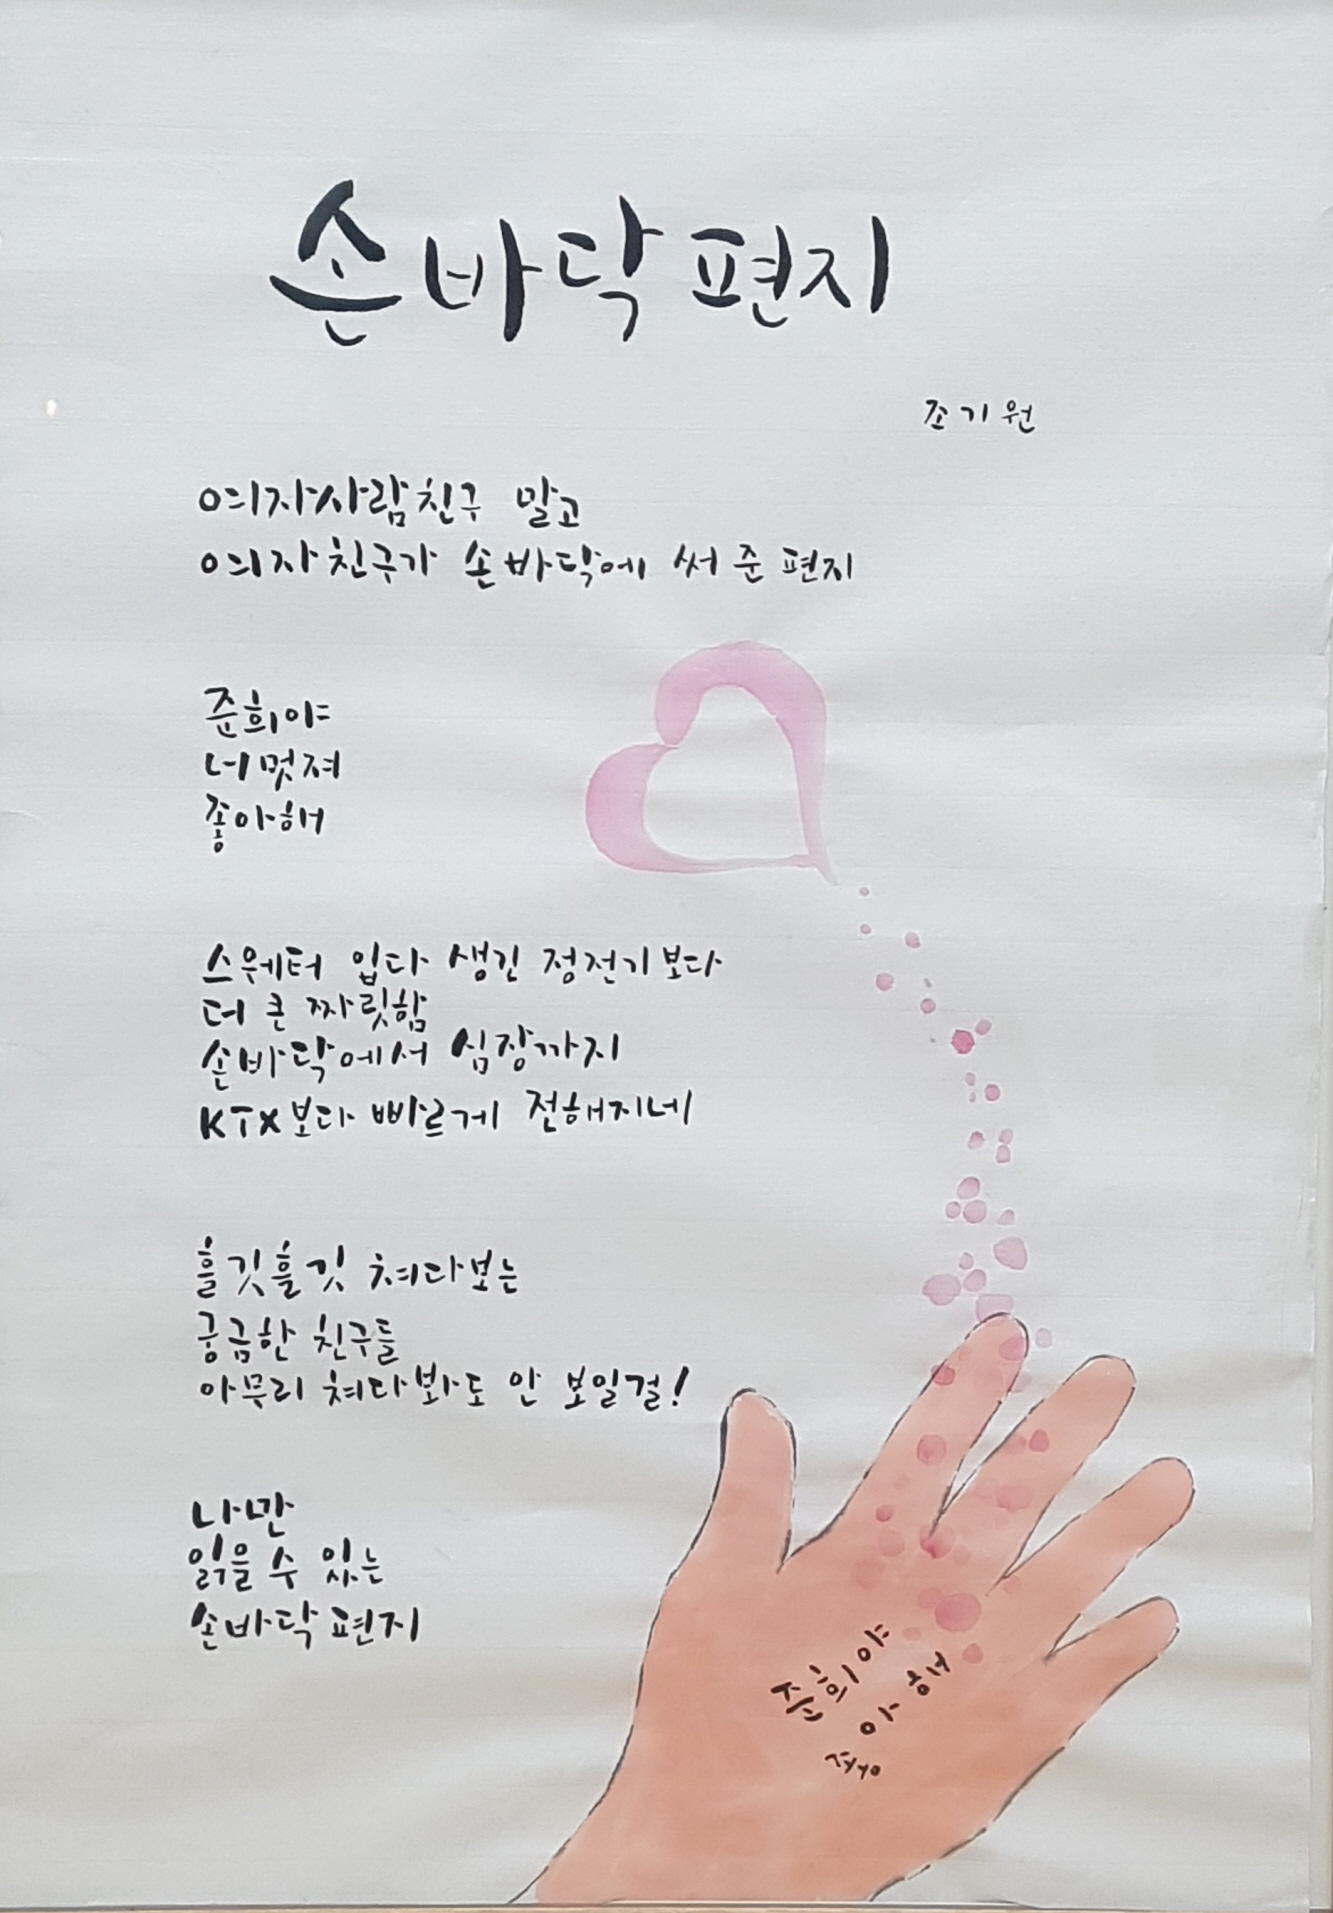 손바닥 편지
조기원
여자사람친구 말고
여자친구가 손바닥에 써 준 편지
준희야
너 멋져
좋아해
스웨터 입다 생긴 정전기보다
더 큰 짜릿함
손바닥에서 심장까지
KTX보다 빠르게 전해지네
흘깃흘깃 쳐다보는
궁금한 친구들
아무리 쳐다봐도 안 보일걸!
나만
읽을 수 있는
손바닥 편지
준희야
좋아해